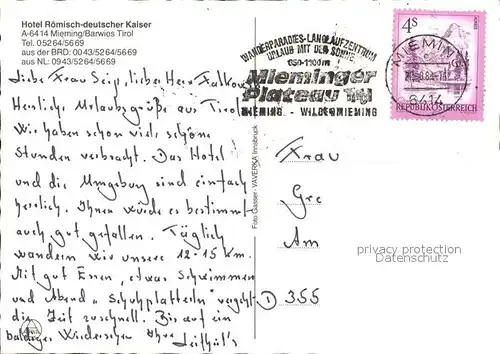 Hotel Römisch-deutscher Kaiser
A-6414 Mieming/Barwies Tirol
Tel. 05264/5669
aus der BRD: 0043/5264/5669
aus NL: 0943/5264/5669
WANDERPARADIES-LANGLAUFZENTRUM
URLAUB MIT DER SONNE
850-1100m
Mieminger
Plateau
MIEMING - WILDERMIEMING
4S
REPUBLIK ÖSTERREICH
MIEMING
6414
Liebe Frau Seip, lieber Herr Falkow
Herzliche Urlaubsgrüße aus Tirol
Wir haben schon viele schöne
Stunden verbracht. Das Hotel
und die Umgebung sind einfach
herrlich. Ihnen würde es bestimmt
auch gut gefallen. Täglich
wandern wir unsere 12-15 Km.
Mit gut Essen, etwas Schwimmen
und Abend "Schuhplatteln" vergeht
die Zeit zu schnell. Bis auf ein
baldiges Wiedersehen Ihre
Foto Gasser - VAVERKA Innsbruck
Frau
Gre
Am
D 355
privacy protection